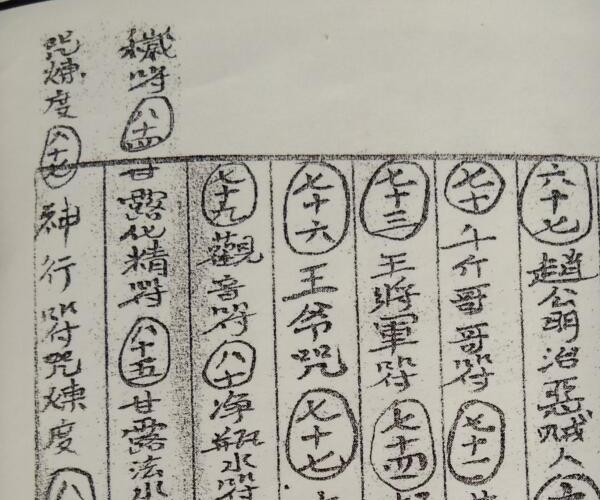 六十七趙公明治惡賊人
七十斗介哥哥符七十一
七十三王將軍符七十四
七十六王爷咒七十七
七十九觀音符八十净瓶水符
穢符八十四甘露化精符八十五甘露法水
咒煉度八十七神行符咒煉度八